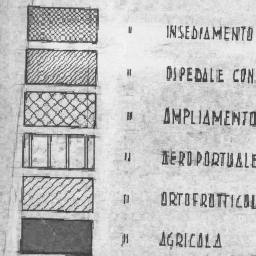 " INSEDIAMENTO
" OSPEDALE CON
" AMPLIAMENTO
" AEROPORTUALE
" ORTOFRUTTICOL
" AGRICOLA